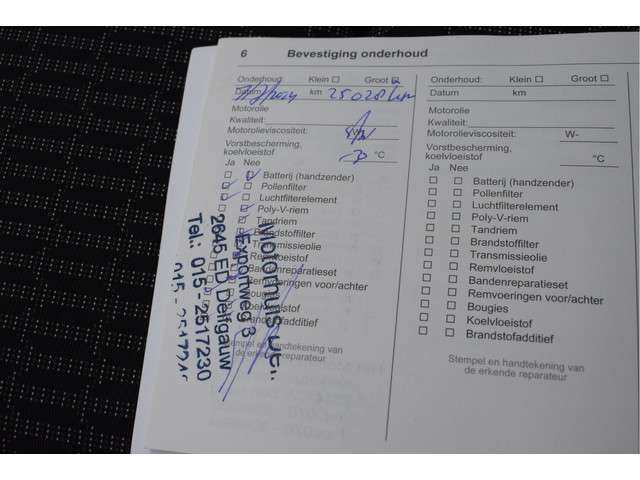 6 Bevestiging onderhoud
Onderhoud: Klein Groot
Datum km 25028 km
Motorolie
Kwaliteit:
Motorolieviscositeit:
Vorstbescherming,
koelvloeistof °C
Ja Nee
Batterij (handzender)
Pollenfilter
Luchtfilterelement
Poly-V-riem
Tandriem
Brandstoffilter
Transmissieolie
Remvloeistof
Bandenreparatieset
Remvoeringen voor/achter
Bougies
Koelvloeistof
Brandstofadditief
Stempel en handtekening van
de erkende reparateur
Exportweg 3
2645 ED Delfgauw
Tel.: 015 - 2517230
Onderhoud: Klein Groot
Datum km
Motorolie
Kwaliteit:
Motorolieviscositeit: W-
Vorstbescherming,
koelvloeistof °C
Ja Nee
Batterij (handzender)
Pollenfilter
Luchtfilterelement
Poly-V-riem
Tandriem
Brandstoffilter
Transmissieolie
Remvloeistof
Bandenreparatieset
Remvoeringen voor/achter
Bougies
Koelvloeistof
Brandstofadditief
Stempel en handtekening van
de erkende reparateur